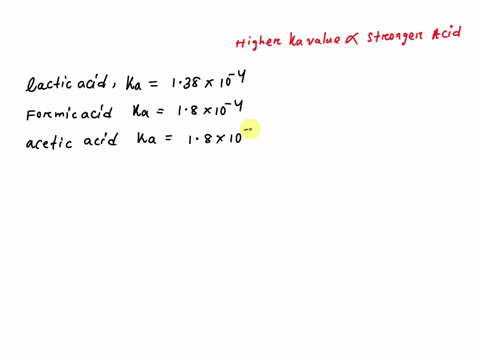 Higher Ka value ∝ Stronger Acid
lactic acid, Ka = 1.38 × 10⁻⁴
Formic acid Ka = 1.8 × 10⁻⁴
acetic acid Ka = 1.8 × 10⁻